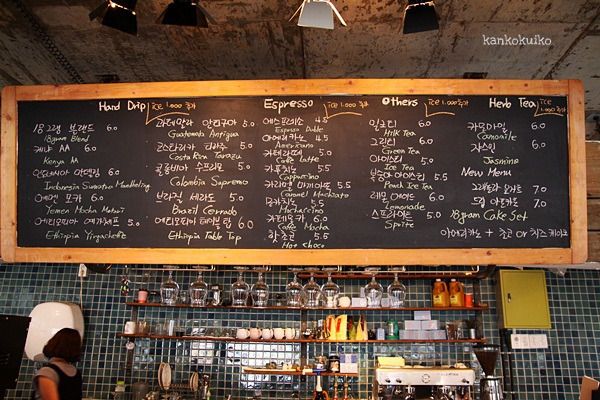 kankokuiko
Hand Drip ice 1.000 추가
18그램 블랜드 6.0
18gram Blend
케냐 AA 6.0
Kenya AA
인도네시아 만델링 6.0
Indonesia Sumatra Mandheling
예멘 모카 6.0
Yemen Mocha
에티오피아 예가체프 5.0
Ethiopia Yirgacheffe
과테말라 안티구아 5.0
Guatemala Antigua
코스타리카 따라주 5.0
Costa Rica Tarazu
콜롬비아 수프리모 5.0
Colombia Supremo
브라질 세라도 5.0
Brazil Cerrado
에티오피아 테이블 탑 6.0
Ethiopia Table Top
Espresso ice 1.000 추가
에스프레소 4.5
Espresso Doble
아메리카노 4.5
Americano
카페라떼 5.0
Cafe Latte
카푸치노 5.0
Cappuccino
카라멜 마끼아또 5.5
Caramel Macchiato
모카치노 5.5
Mochaccino
카페모카 5.5
Cafe Mocha
핫 초코 5.5
Hot Choco
Others ice 1.000 추가
밀크티 5.0
Milk Tea
그린티 5.0
Green Tea
아이스티 5.0
Ice Tea
복숭아 아이스티 5.5
Peach Ice Tea
레몬 에이드 6.0
Lemonade
스프라이트 5.0
Sprite
Herb Tea ice 1.000 추가
카모마일 6.0
Camomile
자스민 6.0
Jasmine
New Menu
7.0
7.0
18gram Cake Set
아메리카노 + 초코 or 치즈 케이크